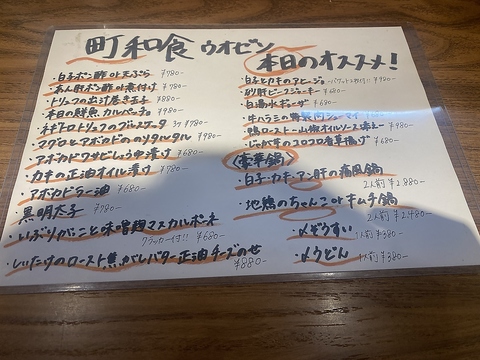 町和食 ウオゼン
本日のオススメ!
・白子ポン酢or天ぷら ¥780-
・あん肝ポン酢or煮付け ¥780-
・トリュフの出汁巻き玉子 ¥880-
・本日の鮮魚 カルパッチョ ¥980-
・ネギトロトリュフのブルスケッタ 3ケ ¥780-
・マグロとアボカドのタルタル ¥980-
・アボカドワサビしょう油漬け ¥680-
・カキの正油オイル漬け ¥780-
・アボカドラー油 ¥680-
・黒明太子 ¥780-
・いぶりがっこと味噌麹マスカルポーネ
クラッカー付!! ¥680-
・しいたけのロースト焦がしバター正油チーズのせ
¥880-
・白子とカキのアヒージョ ¥980-
・砂肝ビーフジャーキー ¥680-
・白湯水ギョーザ ¥680-
・鴨ロースト 山椒オイルソース添え ¥980-
・じゃが芋のコロコロ香草揚げ ¥680-
〈豪華鍋〉
・白子・カキ・アン肝の痛風鍋
2人前 ¥2.880-
・地鶏のちゃんこorキムチ鍋
2人前 ¥2.480-
・〆ぞうすい 1人前 ¥380-
・〆うどん 1人前 ¥380-